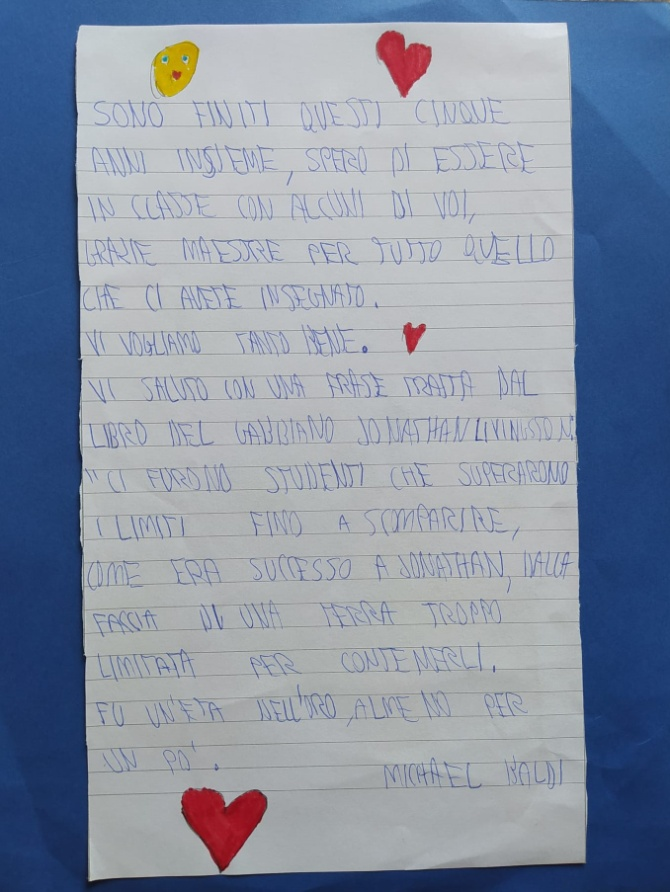 SONO FINITI QUESTI CINQUE
ANNI INSIEME, SPERO DI ESSERE
IN CLASSE CON ALCUNI DI VOI,
GRAZIE MAESTRE PER TUTTO QUELLO
CHE CI AVETE INSEGNATO.
VI VOGLIAMO TANTO BENE.
VI SALUTO CON UNA FRASE TRATTA DAL
LIBRO DEL GABBIANO JONATHAN LIVINGSTON:
"CI FURONO STUDENTI CHE SUPERARONO
I LIMITI FINO A SCOMPARIRE,
COME ERA SUCCESSO A JONATHAN, DALLA
FACCIA DI UNA TERRA TROPPO
LIMITATA PER CONTENERLI.
FU UN'ETA DELL'ORO, ALMENO PER
UN PO'.
MICHAEL